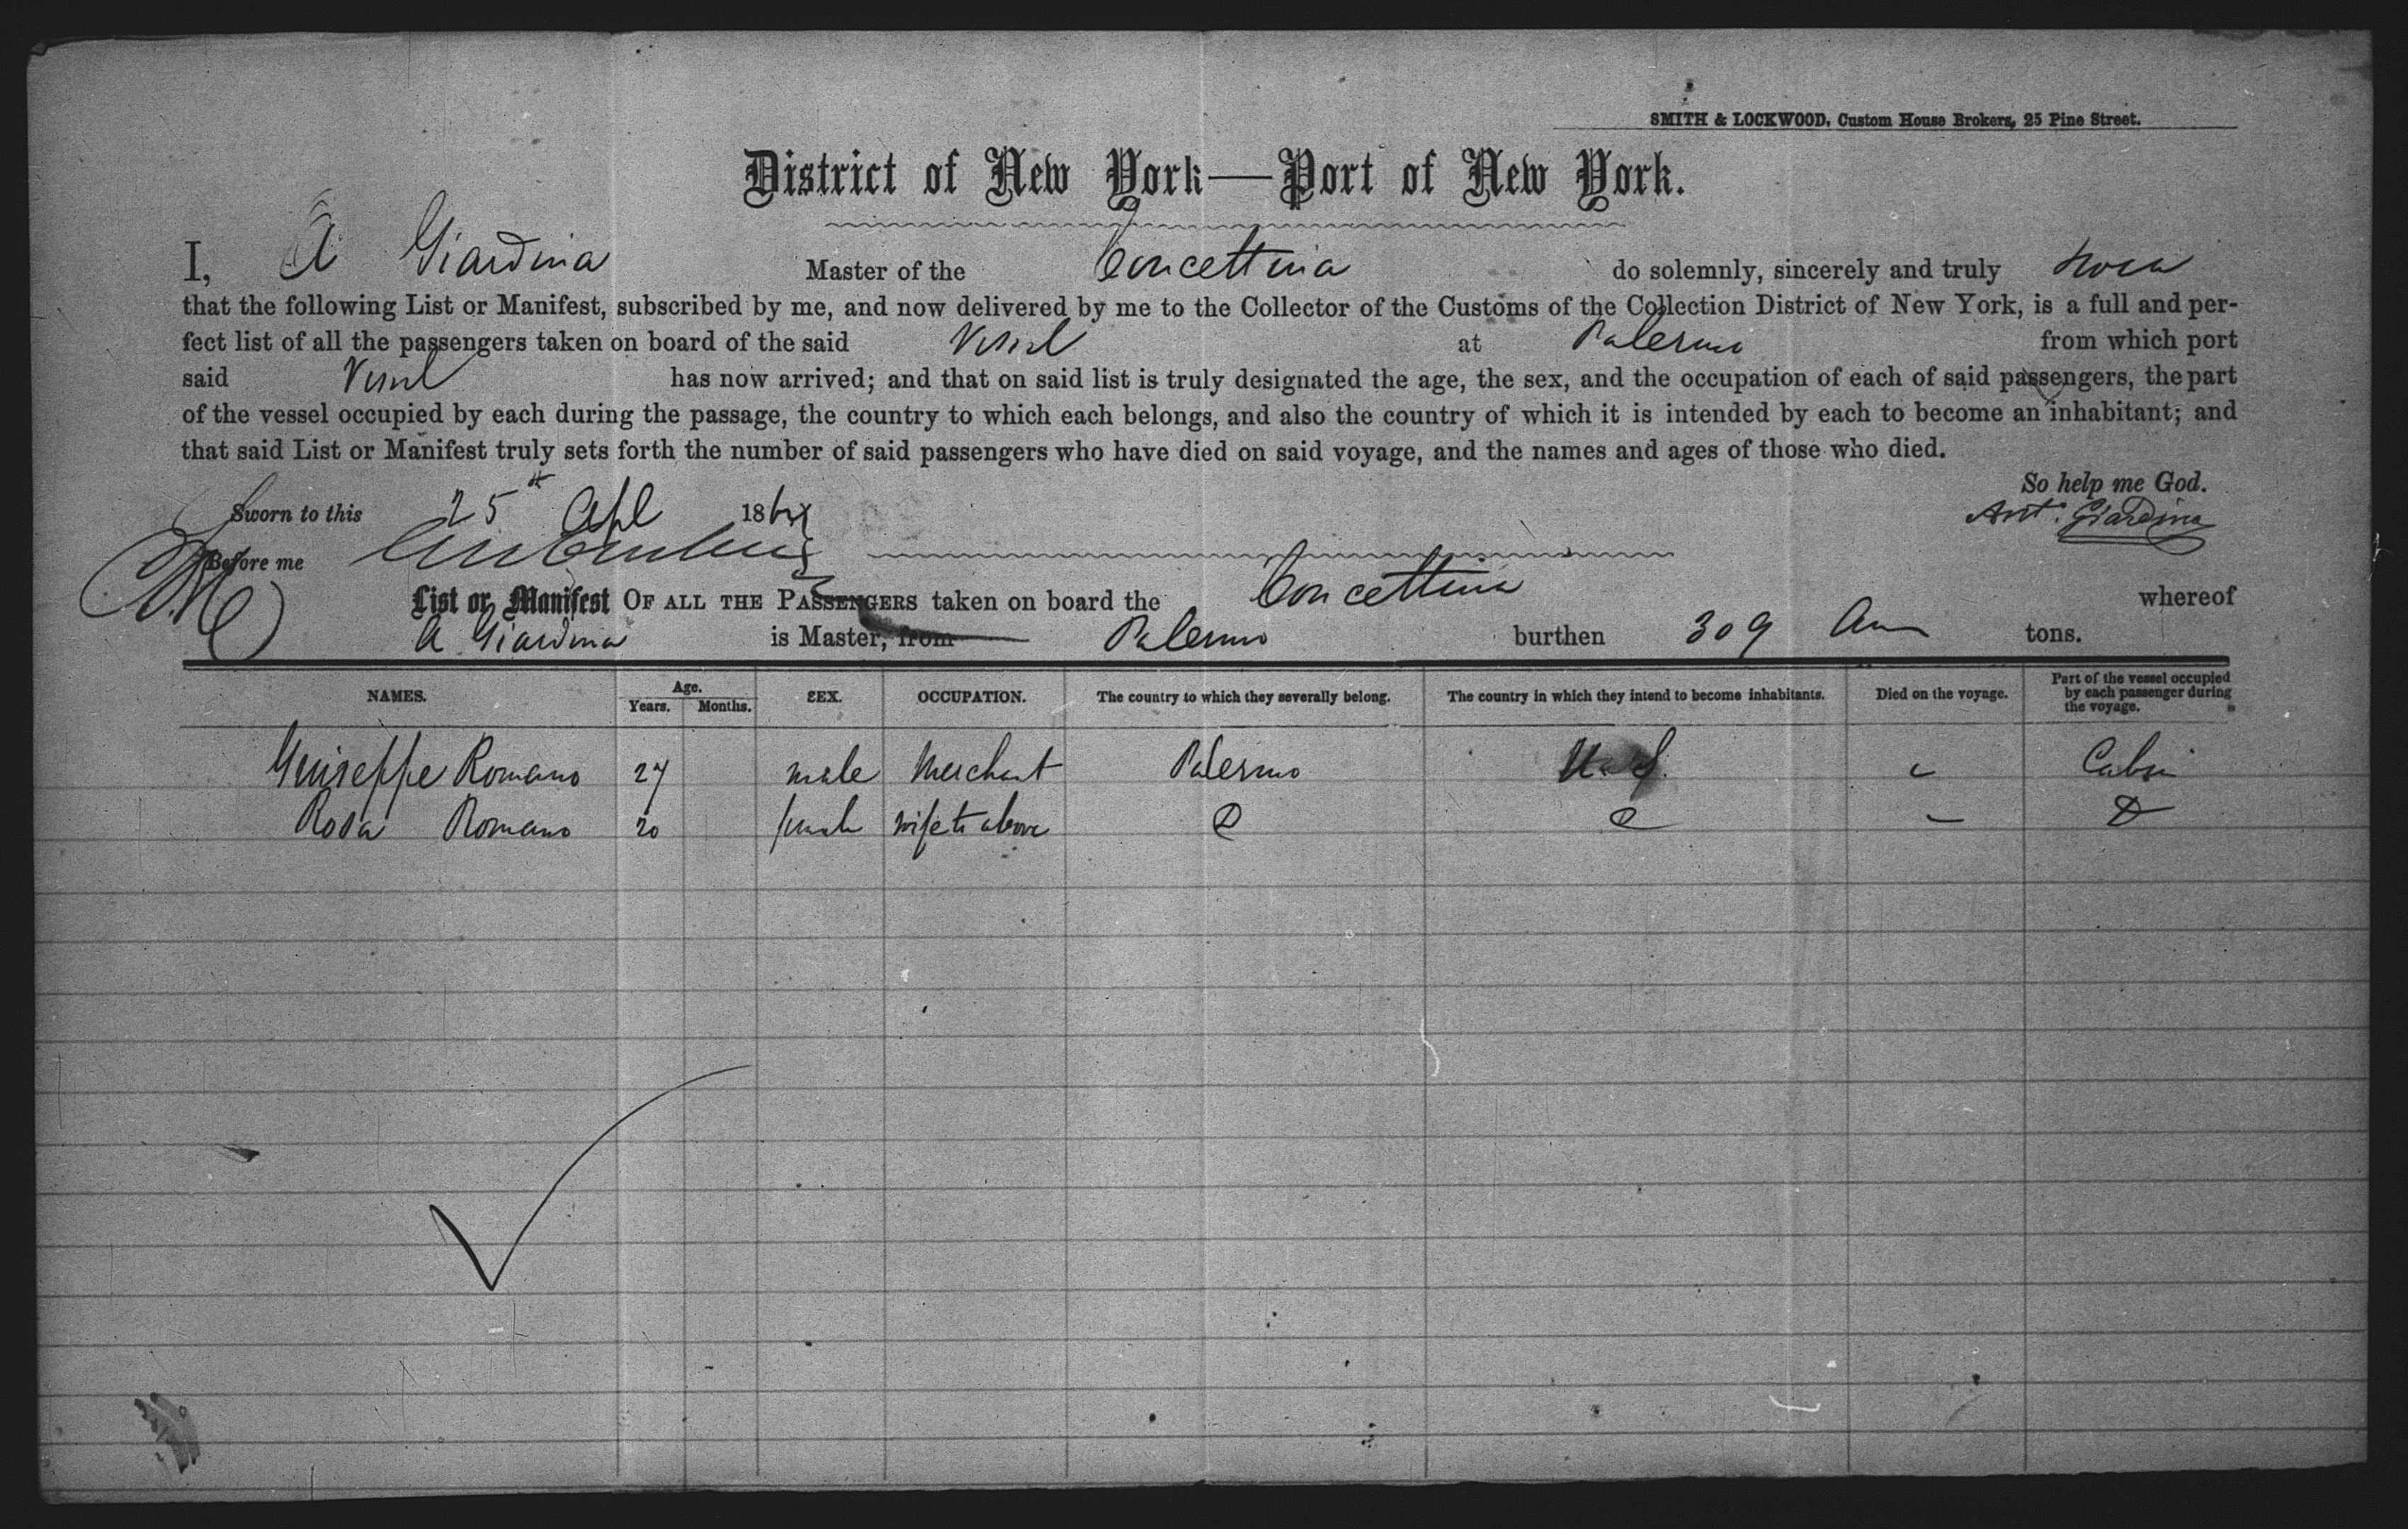 SMITH & LOCKWOOD, Custom House Brokers, 25 Pine Street.
District of New York—Port of New York.
I, A Giardina Master of the Concettina do solemnly, sincerely and truly swear
that the following List or Manifest, subscribed by me, and now delivered by me to the Collector of the Customs of the Collection District of New York, is a full and per-
fect list of all the passengers taken on board of the said Vessel at Palermo from which port
said Vessel has now arrived; and that on said list is truly designated the age, the sex, and the occupation of each of said passengers, the part
of the vessel occupied by each during the passage, the country to which each belongs, and also the country of which it is intended by each to become an inhabitant; and
that said List or Manifest truly sets forth the number of said passengers who have died on said voyage, and the names and ages of those who died.
So help me God.
Sworn to this 25th Apl 186
Ant. Giardina
Before me
List or Manifest OF ALL THE PASSENGERS taken on board the Concettina whereof
A Giardina is Master, from Palermo burthen 309 tons.
NAMES. Age. Years. Months. SEX. OCCUPATION. The country to which they severally belong. The country in which they intend to become inhabitants. Died on the voyage. Part of the vessel occupied by each passenger during the voyage.
Guiseppe Romano 27 male Merchant Palermo U.S. Cabin
Rosa Romano 20 female wife to above